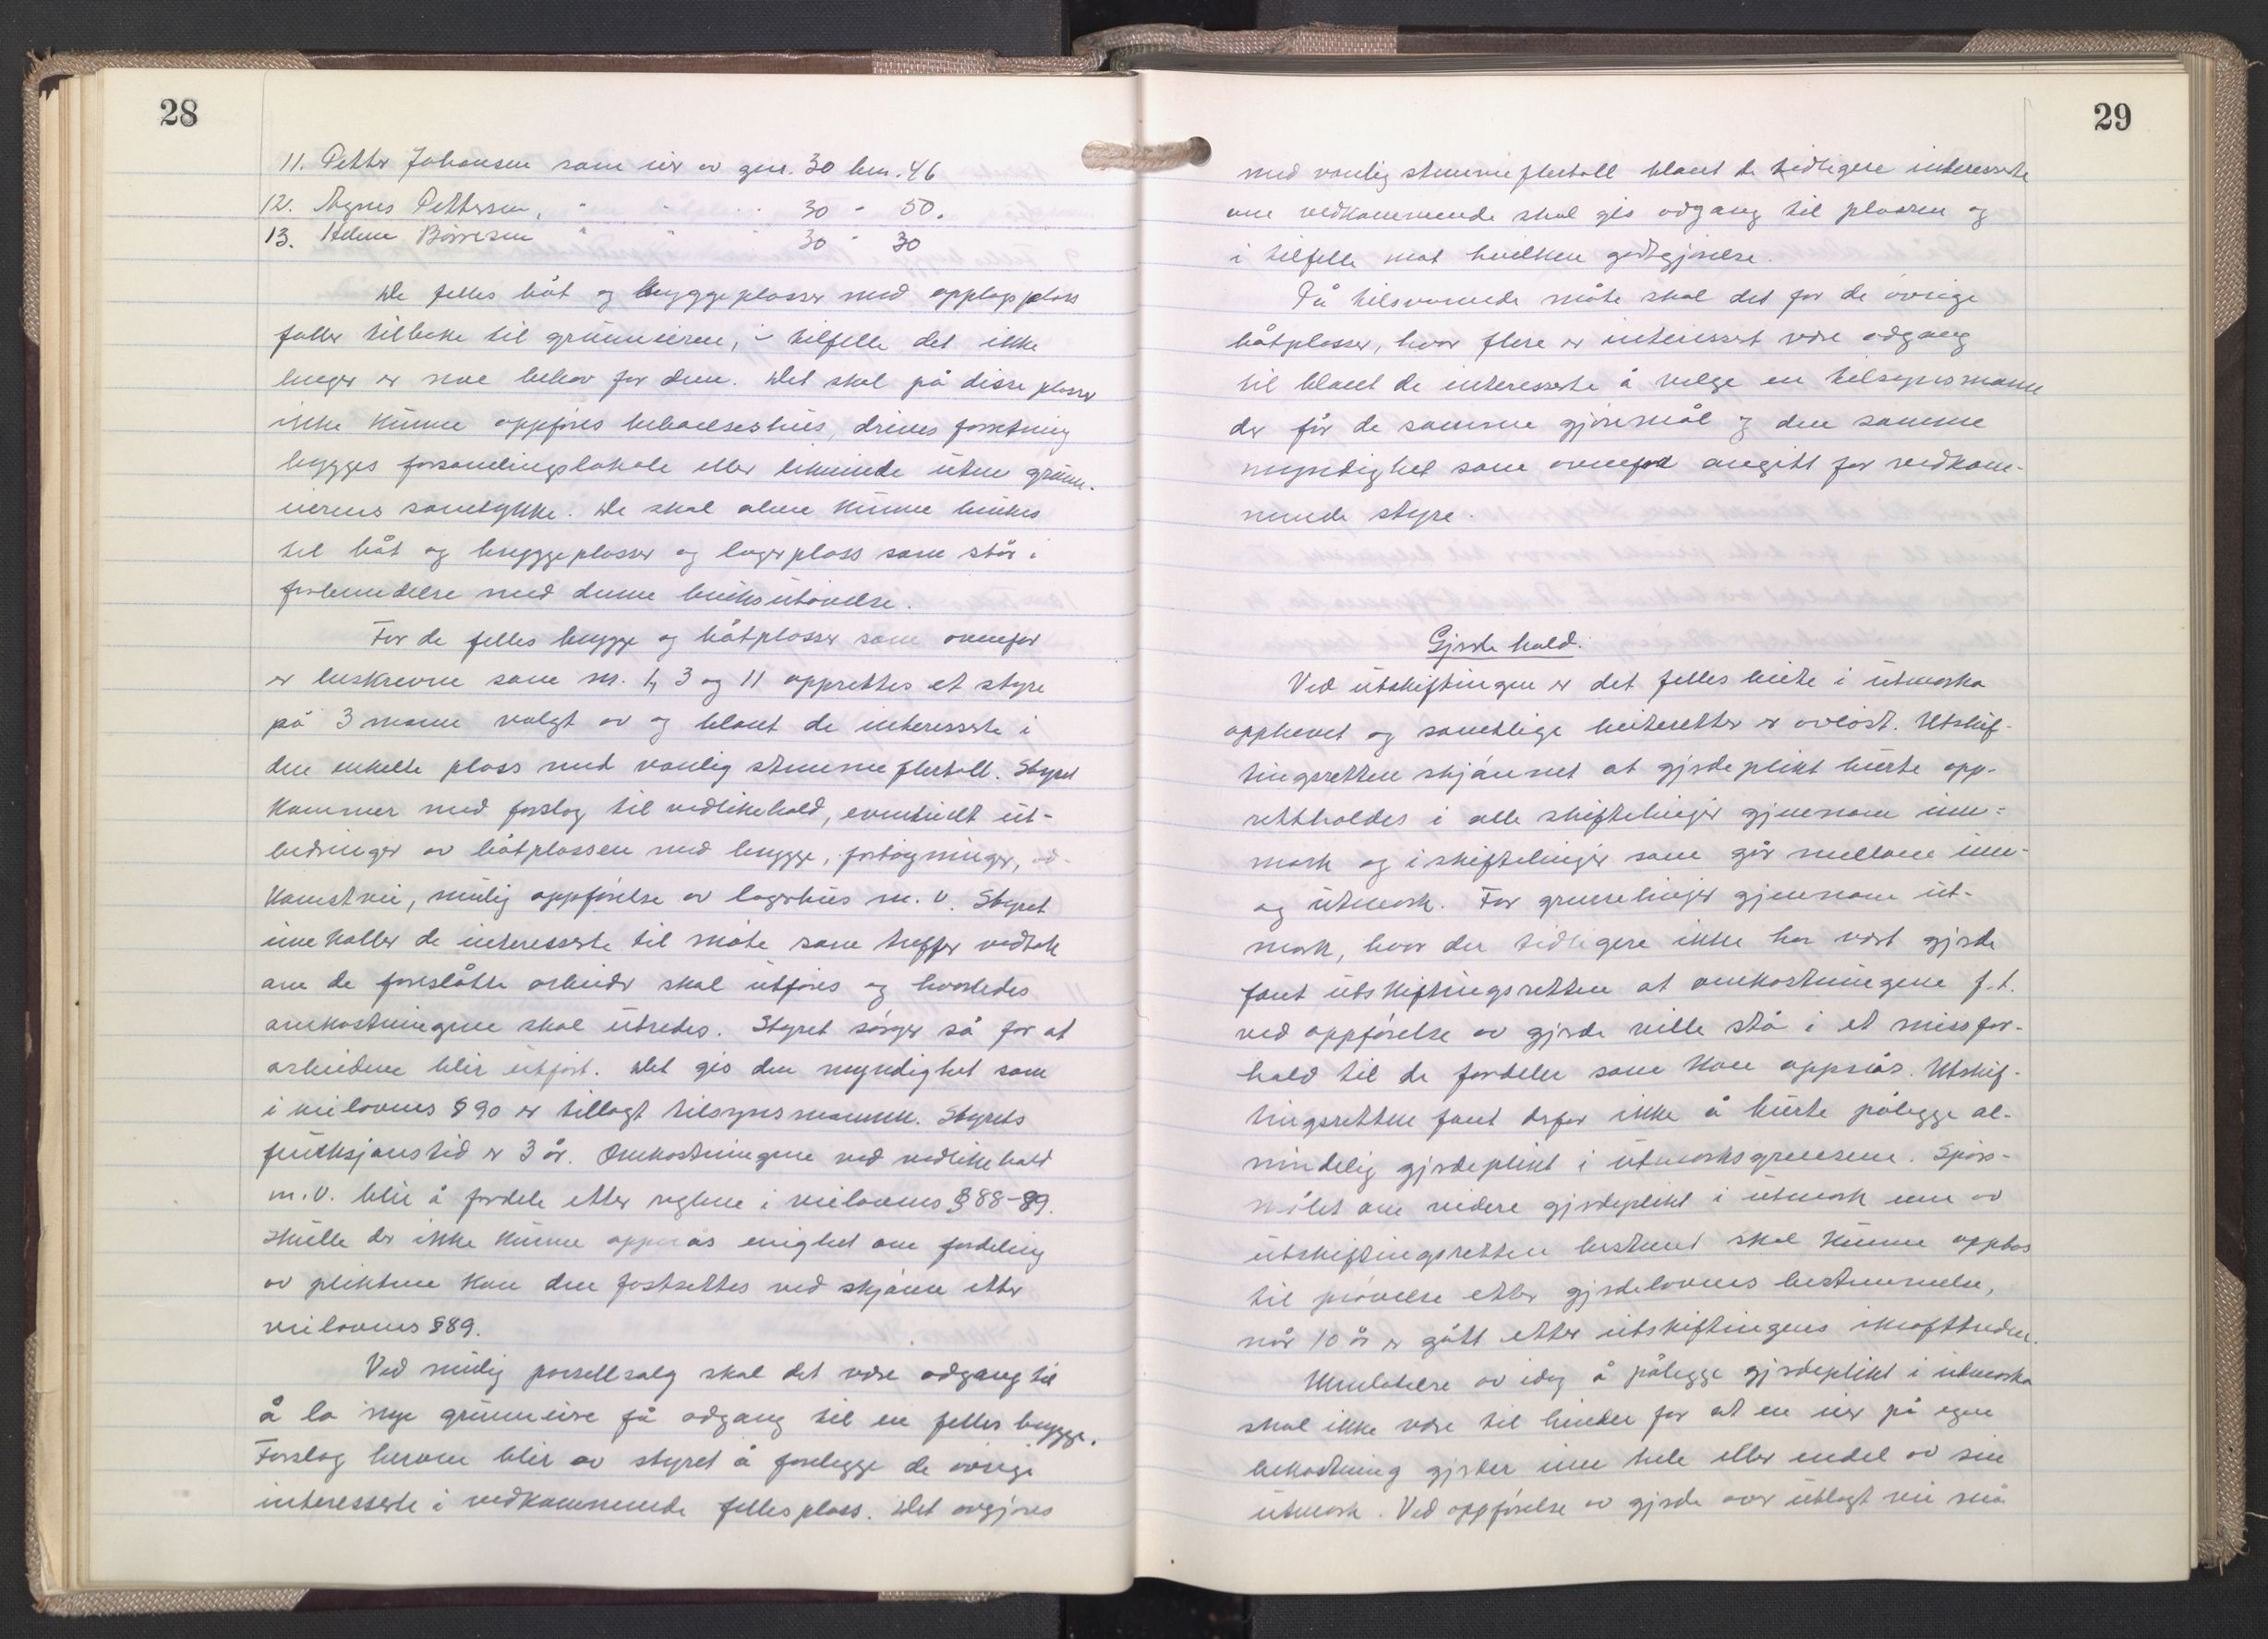 28
11. Petter Johansen som eier av gnr. 30 bnr. 46
12. Agnes Pettersen, " - " 30 - 50.
13. Helene Börresen " " " 30 - 30
De felles båt og bryggeplasser med opplagsplass
faller tilbake til grunneieren, i tilfelle det ikke
lenger er noe behov for dem. Det skal på disse plasser
ikke kunne oppføres beboelseshus, drives forretning
bygges forsamlingslokale eller lignende uten grunn-
eierens samtykke. De skal alene kunne brukes
til båt og bryggeplasser og lagerplass som står i
forbindelse med denne bruksutövelse.
For de felles brygge og båtplasser som ovenfor
er beskrevne som nr. 1, 3 og 11 opprettes et styre
på 3 mann valgt av og blant de interesserte i
den enkelte plass med vanlig stemmeflertall. Styret
kommer med forslag til vedlikehold, eventuelt ut-
bedringer av båtplassen med brygge, fortöyninger, ad-
komstvei, mulig oppförelse av lagerhus m.v. Styret
innkaller de interesserte til möte som treffer vedtak
om de foreslåtte arbeider skal utföres og hvorledes
omkostningene skal utredes. Styret sörger så for at
arbeidene blir utfört. Det gis den myndighet som
i veilovens § 90 er tillagt tilsynsmannen. Styrets
funksjonstid er 3 år. Omkostningene ved vedlikehold
m.v. blir å fordele etter reglene i veilovens § 88-89.
Skulle der ikke kunne oppnåes enighet om fordeling
av pliktene kan den fastsettes ved skjönn etter
veilovens § 89.
Ved mulig parsellsalg skal det være adgang til
å la nye grunneiere få adgang til en felles brygge.
Forslag herom blir av styret å forelegge de övrige
interesserte i vedkommende fellesplass. Det avgjöres
29
med vanlig stemmeflertall blant de tidligere interesserte
om vedkommende skal gis adgang til plassen og
i tilfelle mot hvilken godtgjörelse.
På tilsvarende måte skal det for de övrige
båtplasser, hvor flere er interessert være adgang
til blant de interesserte å velge en tilsynsmann
der får de samme gjöremål og den samme
myndighet som ovenfor angitt for vedkom-
mende styre.
Gjerdehold.
Ved utskiftingen er det felles beite i utmarka
opphevet og samtlige beiteretter er avlöst. Utskif-
tingsretten skjönnet at gjerdeplikt burte opp-
rettholdes i alle skiftelinjer gjennom inn-
mark og i skiftelinjer som går mellom inn-
og utmark. For grenselinjer gjennom ut-
mark, hvor der tidligere ikke har vært gjerde
fant utskiftingsretten at omkostningene f.t.
ved oppförelse av gjerde ville stå i et missfor-
hold til de fordeler som kan oppnås. Utskif-
tingsretten fant derfor ikke å burte pålegge al-
mindelig gjerdeplikt i utmarksgrensene. Spörs-
målet om videre gjerdeplikt i utmark enn av
utskiftingsretten bestemt skal kunne opptas
til prövelse etter gjerdelovens bestemmelse,
når 10 år er gått etter utskiftingens ikrafttreden.
Unnlatelse av idag å pålegge gjerdeplikt i utmarka
skal ikke være til hinder for at en eier på egen
bekostning gjerder inn hele eller endel av sin
utmark. Ved oppförelse av gjerde over utlagt vei må